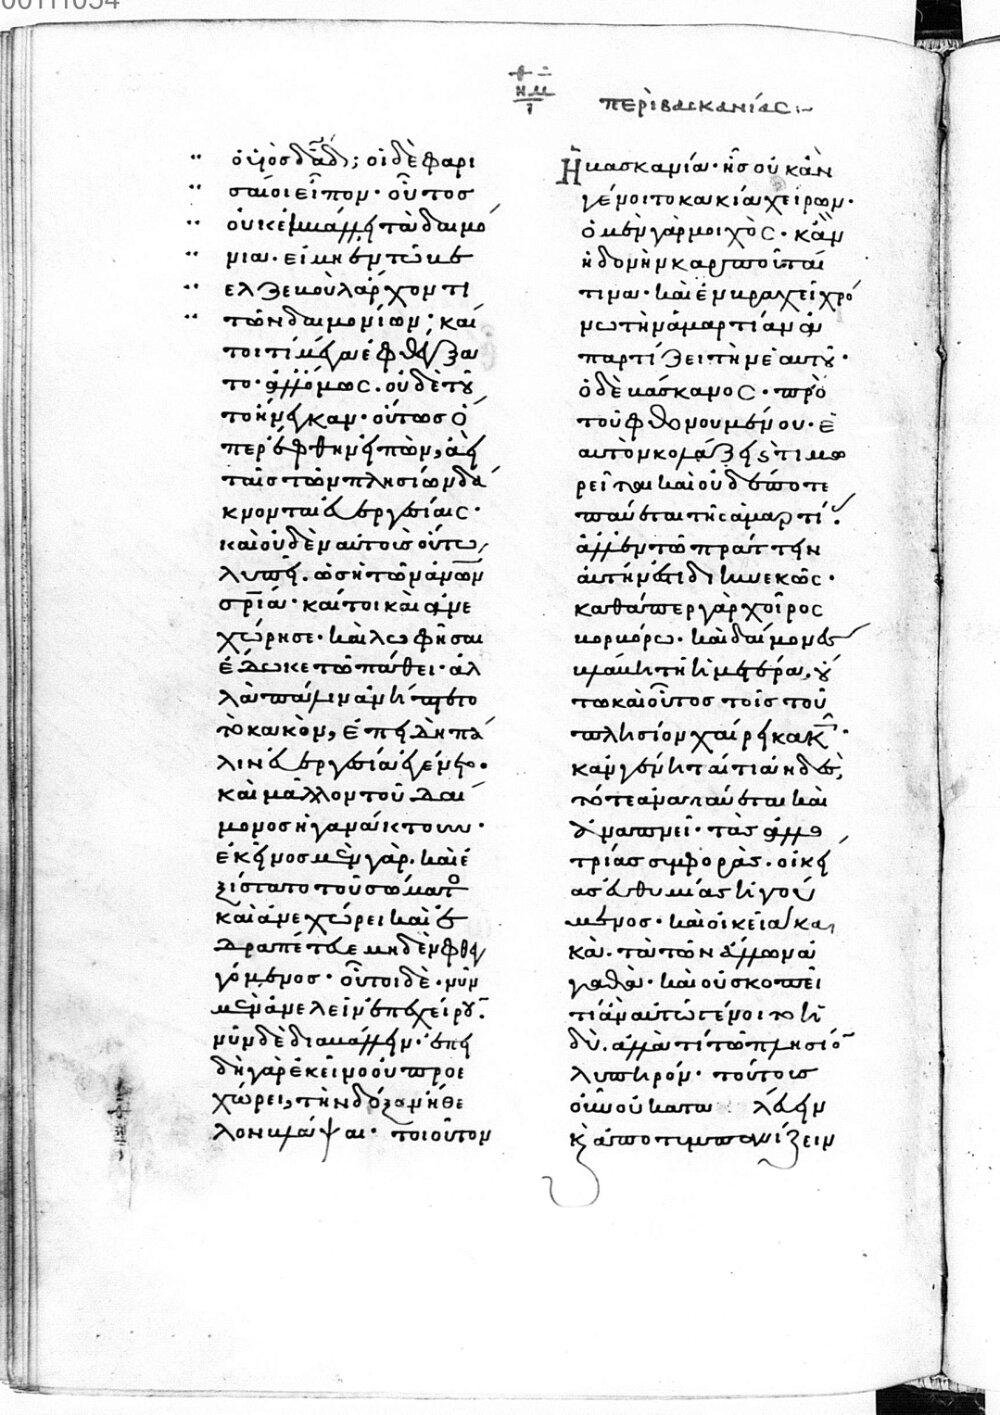 περὶ βασκανίας :-
ὁ υἱὸς δαδ; οἱ δὲ φαρι
σαῖοι εἶπον· οὗτος
οὐκ ἐκβάλλει τὰ δαιμό
νια· εἰ μὴ ἐν τῶ βε
ελζεβοὺλ ἄρχοντι
τῶν δαιμονίων· καί
τοι τί
το· ἀλλ' ὅμως· οὐδὲ τοῦ
το ἤνεγκαν· οὕτως ὅ
περ ἔφθην εἰπὼν, ἀεὶ
ταῖς τῶν πλησίων δά
κνονται εὐεργεσίαις·
καὶ οὐδὲν αὐτοὺς οὕτω
λυπεῖ· ὡς ἡ τῶν ἀνων
σρία· καίτοι καὶ ἀνε
χώρησε· καὶ λωφῆσαι
ἔδωκε τῶ πάθει· ἀλ
λὰ πάλιν ἀνήπτετο
τὸ κακὸν, ἐπειδὴ πά
λιν εὐεργεσία ἐγένετο·
καὶ μᾶλλον τοῦ δαί
μονος ἠγανάκτουν·
ἐκεῖνος μὲν γὰρ· καὶ ἐ
ξίστατο τοῦ σώματος
καὶ ἀνεχώρει καὶ ἐ
δραπέτευε μηδὲν φθεγ
γόμενος· οὗτοι δὲ· νῦν
μὲν ἀνελεῖν ἐπεχείρουν·
νῦν δὲ διαβάλλειν· ἐπει
δὴ γὰρ ἐκεῖνο οὐ προε
χώρει, τὴν δόξαν ἤθε
λον βλάψαι· τοιοῦτον
Ἡ βασκανία· ἧς οὐκ ἂν
γένοιτο κακία χείρων·
ὁ μὲν γὰρ μοιχὸς· κἂν
ἡδονὴν καρποῦταί
τινα· καὶ ἐν βραχεῖ χρό
νω τὴν ἁμαρτίαν ἀ
παρτίζει τὴν ἑαυτοῦ·
ὁ δὲ βάσκανος· πρὸ
τοῦ φθονουμένου· ἑ
αυτὸν κολάζει καὶ τιμω
ρεῖται καὶ οὐδέποτε
παύεται τῆς ἁμαρτί·
ἀλλ' ἐν τῶ πράττειν
αὐτήν ἐστι διηνεκῶς·
καθάπερ γὰρ χοῖρος
βορβόρω· καὶ δαίμονες
βλάβη τῆ ἡμετέρα, οὕ
τω καὶ οὗτος τοῖς τοῦ
πλησίον χαίρει κακ·
κἂν γένηταί τι ἀηδὲς,
τότε ἀναπαύεται καὶ
ἀναπνεῖ· τὰς ἀλλο
τρίας συμφορὰς· οἰκεί
ας εὐθυμίας ἡγού
μενος· καὶ οἰκεῖα κα
κὰ· τὰ τῶν ἄλλων ἀ
γαθά· καὶ οὐ σκοπεῖ
τί ἂν αὐτῶ γένοιτο ἡ
δὺ· ἀλλὰ τί τῶ πλησίον
λυπηρόν· τούτους
οὖν οὐ κατα λεύειν
κ ἀποτυμπανίζειν